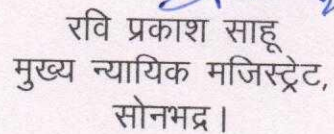 रवि प्रकाश साहू
मुख्य न्यायिक मजिस्ट्रेट,
सोनभद्र।